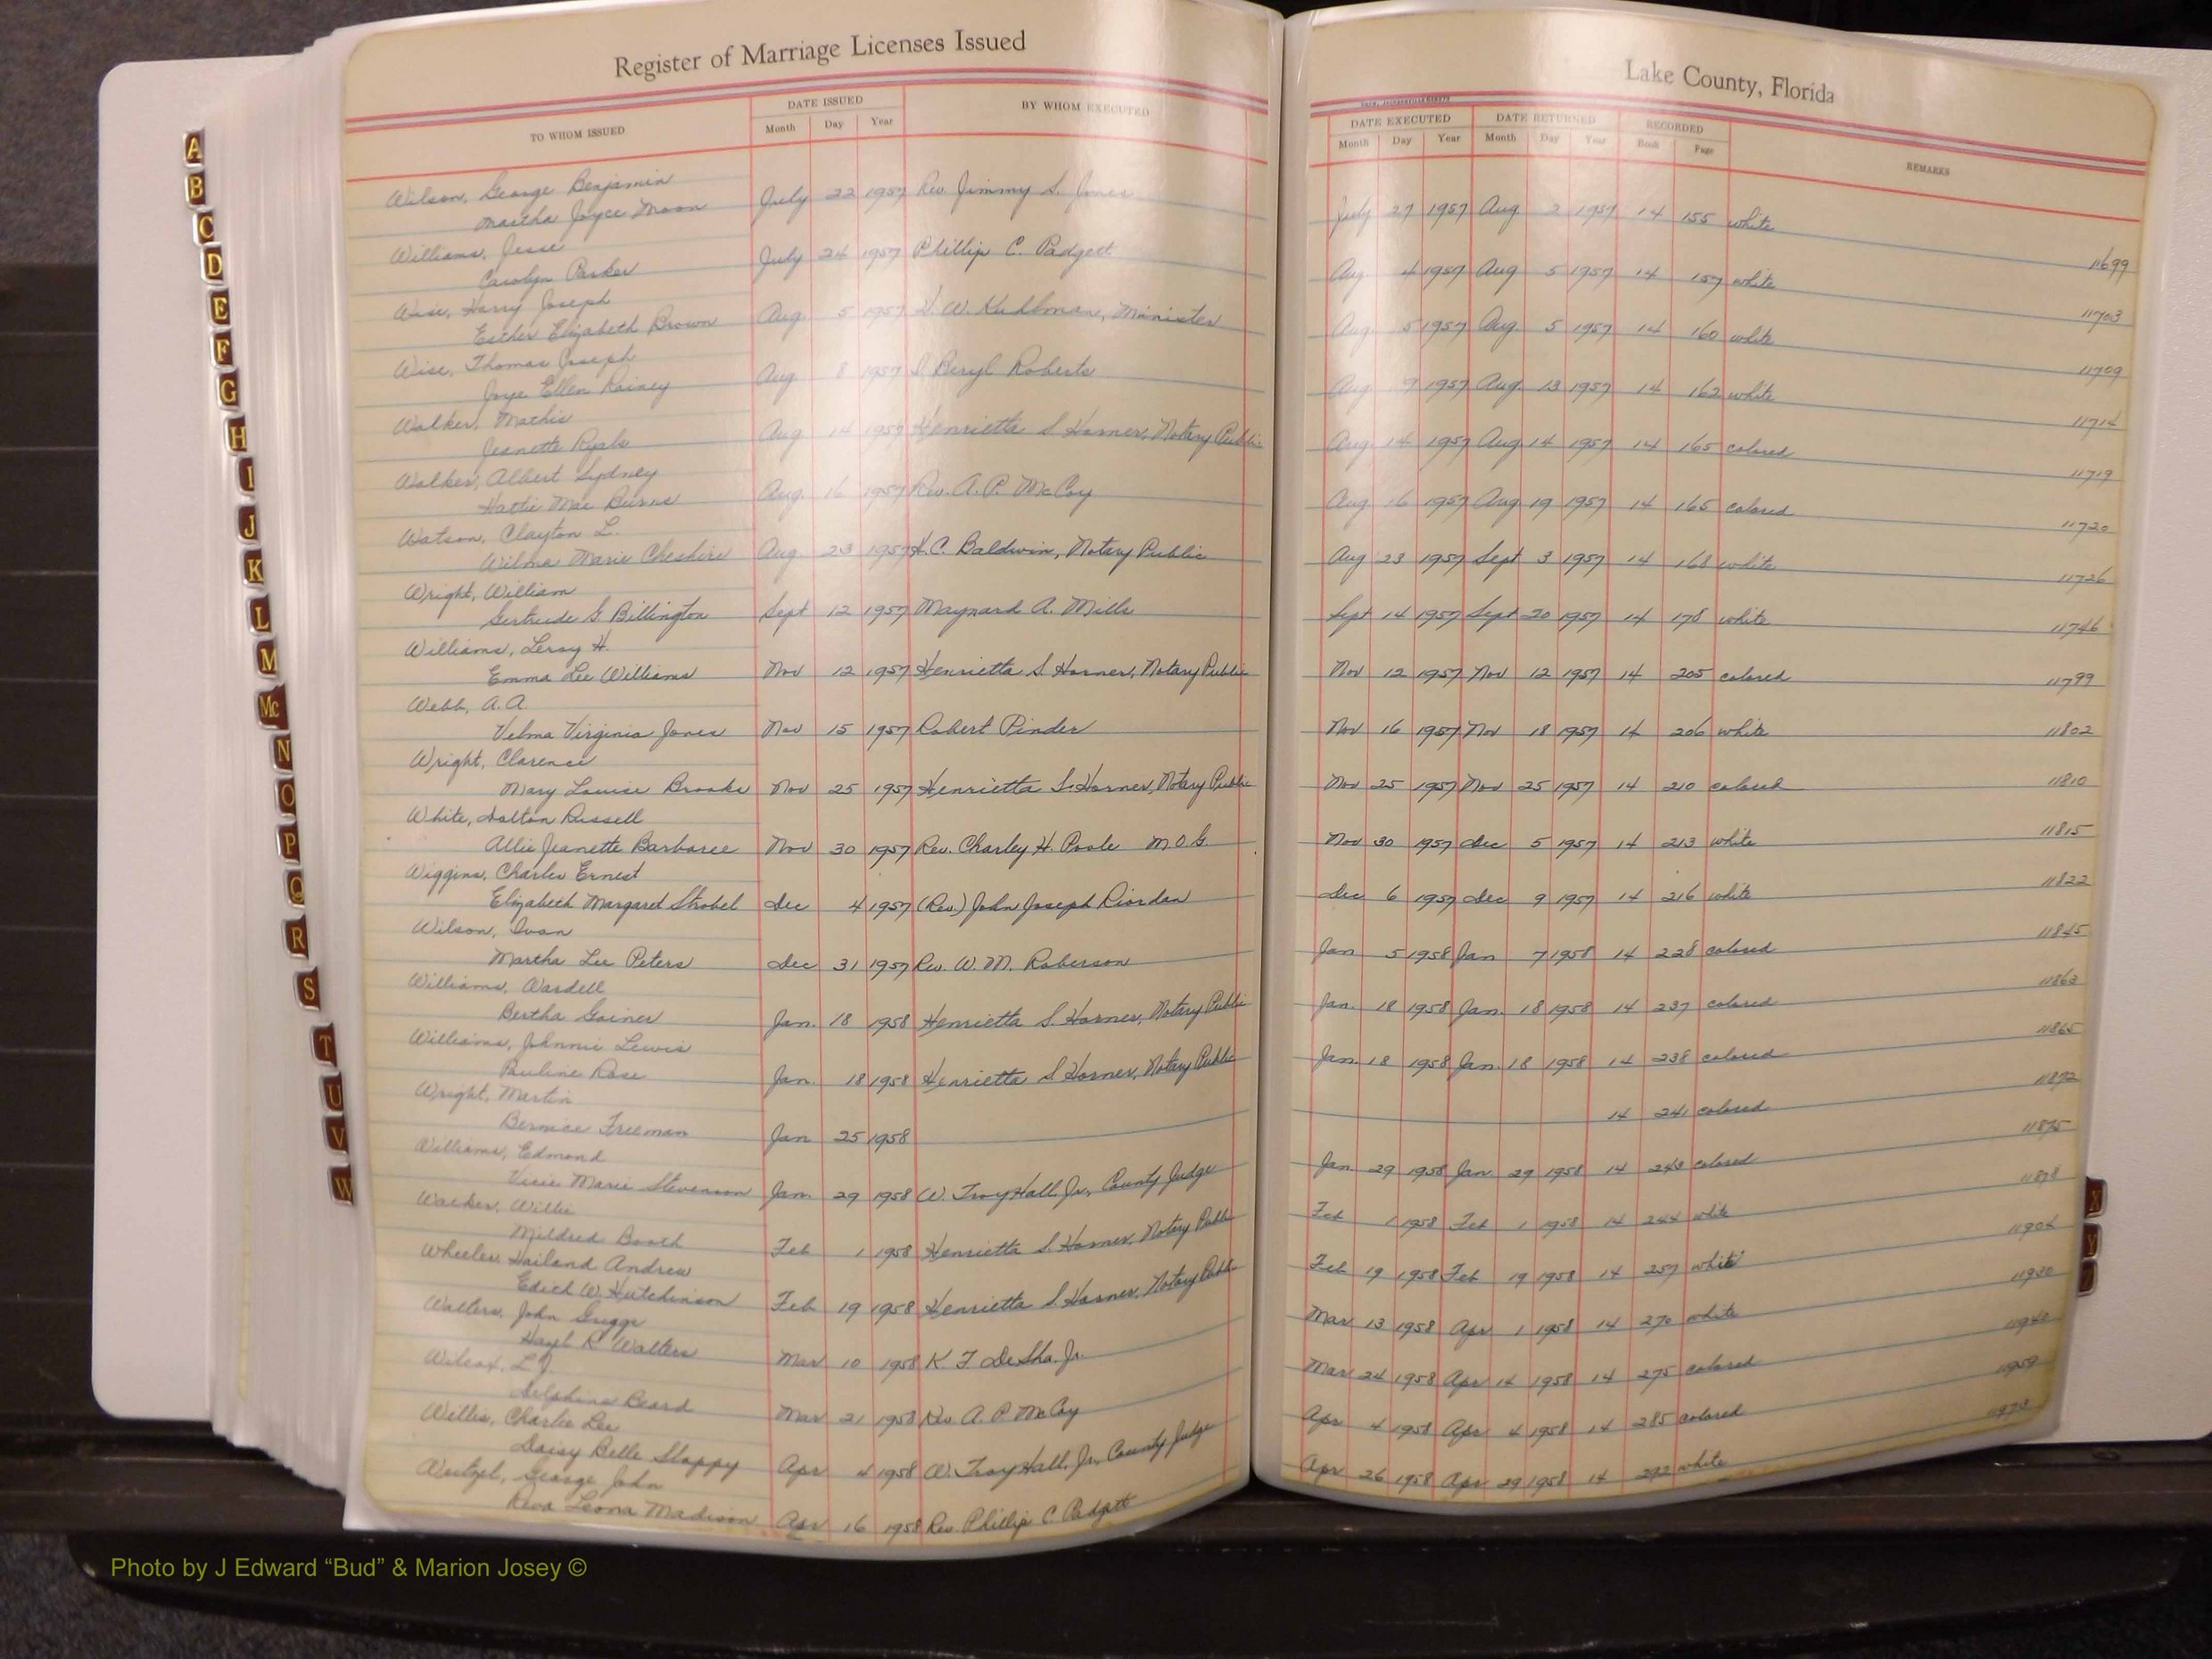 Register of Marriage Licenses Issued
TO WHOM ISSUED
DATE ISSUED
Month Day Year
BY WHOM EXECUTED
Lake County, Florida
DATE EXECUTED
Month Day Year
DATE RETURNED
Month Day Year
RECORDED
Book Page
REMARKS
Wilson, George Benjamin
Martha Joyce Moon July 22 1957 Rev. Jimmy S. Jones July 27 1957 Aug 2 1957 14 155 white 11699
Williams, Jesse
Carolyn Parker July 24 1957 Phillip C. Padgett Aug. 4 1957 Aug 5 1957 14 157 white 11703
Wise, Harry Joseph
Esther Elizabeth Brown Aug. 5 1957 H. W. Kuhlman, Minister Aug. 5 1957 Aug. 5 1957 14 160 white 11709
Wise, Thomas Joseph
Joye Ellen Rainey Aug 8 1957 Beryl Roberts Aug 9 1957 Aug. 13 1957 14 162 white 11714
Walker, Mathis
Jeanette Ryals Aug. 14 1957 Henrietta S Horner, Notary Public Aug. 14 1957 Aug 14 1957 14 165 colored 11719
Walker, Albert Sydney
Hattie Mae Burns Aug. 16 1957 Rev. A. P. McCoy Aug. 16 1957 Aug 19 1957 14 165 colored 11720
Watson, Clayton L.
Wilma Marie Cheshire Aug. 23 1957 H.C. Baldwin, Notary Public Aug 23 1957 Sept 3 1957 14 168 white 11726
Wright, William
Gertrude G Billington Sept 12 1957 Maynard A. Mills Sept 14 1957 Sept 20 1957 14 178 white 11746
Williams, Leroy H.
Emma Lee Williams Nov 12 1957 Henrietta S Horner, Notary Public Nov 12 1957 Nov 12 1957 14 205 colored 11799
Webb, A.A.
Velma Virginia Jones Nov 15 1957 Robert Pinder Nov 16 1957 Nov 18 1957 14 206 white 11802
Wright, Clarence
Mary Louise Brooks Nov 25 1957 Henrietta S. Horner, Notary Public Nov 25 1957 Nov 25 1957 14 210 colored 11810
White, Dalton Russell
Allie Jeanette Barbaree Nov 30 1957 Rev. Charley H. Poole M.O.G. Nov 30 1957 Dec 5 1957 14 213 white 11815
Wiggins, Charles Ernest
Elizabeth Margaret Strobel Dec 4 1957 (Rev.) John Joseph Riordan Dec 6 1957 Dec 9 1957 14 216 white 11822
Wilson, Ivan
Martha Lee Peters Dec 31 1957 Rev. W. M. Roberson Jan 5 1958 Jan 7 1958 14 228 colored 11845
Williams, Wardell
Bertha Gainer Jan. 18 1958 Henrietta S. Horner, Notary Public Jan. 18 1958 Jan. 18 1958 14 237 colored 11863
Williams, Johnnie Lewis
Pauline Rose Jan. 18 1958 Henrietta S Horner, Notary Public Jan. 18 1958 Jan. 18 1958 14 238 colored 11865
Wright, Martin
Bernice Freeman Jan 25 1958 14 241 colored 11872
Williams, Edmond
Marie Stevenson Jan. 29 1958 W. Troy Hall, Jr., County Judge Jan 29 1958 Jan 29 1958 14 243 colored 11875
Walker, Willie
Mildred Booth Feb 1 1958 Henrietta S. Horner, Notary Public Feb 1 1958 Feb 1 1958 14 244 white 11878
Wheeler, Hailand Andrew
Edith W. Hutchinson Feb 19 1958 Henrietta S. Horner, Notary Public Feb 19 1958 Feb 19 1958 14 257 white 11904
Walters, John Griggs
Hazel K Walters Mar 10 1958 K. F DeSha. Jr. Mar 13 1958 Apr 1 1958 14 270 white 11930
Wilcox, L J
Delphine Beard Mar 21 1958 Rev A. P McCoy Mar 24 1958 Apr 14 1958 14 275 colored 11940
Willis, Charlie Lee
Daisy Belle Slappy Apr 4 1958 W. Troy Hall, Jr., County Judge Apr 4 1958 Apr 4 1958 14 285 colored 11959
Weitzel, George John
Reva Leona Madison Apr 16 1958 Rev. Phillip C Padgett Apr 26 1958 Apr 29 1958 14 292 white 11973
A
B
C
D
E
F
G
H
I
J
K
L
M
Mc
N
O
P
Q
R
S
T
U
V
W
X
Y
Photo by J Edward “Bud” & Marion Josey ©